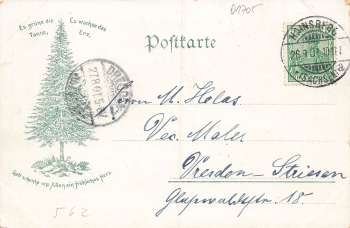 01705
Es grüne die Tanne,
Es wachse das Erz,
Gott schenke uns Allen ein fröhliches Herz.
Postkarte
HAINSBERG
(SACHSEN) a
DRESDEN
27.8.01
Herrn M. Holas.
Dec. Maler
Dresden - Striesen
Glashwaldtstr. 18.
562